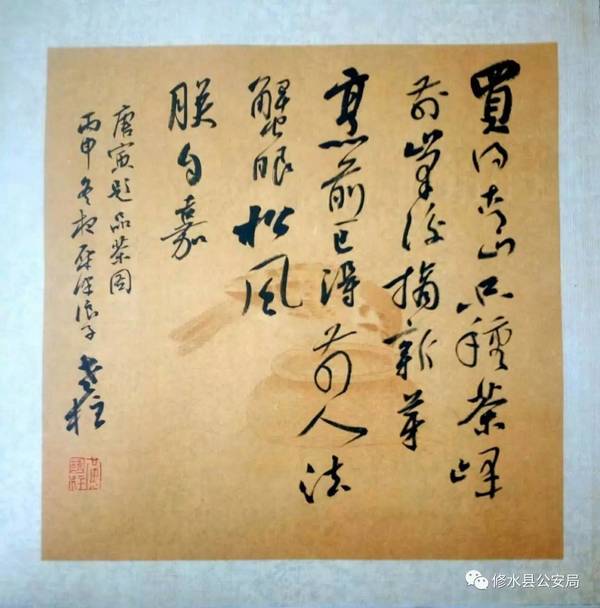 買得青山只種茶峰
前峯後摘新芽
烹前已得前人法
蟹眼松風
朕自嘉
唐寅題品茶图
丙申冬夜浪子
修水县公安局